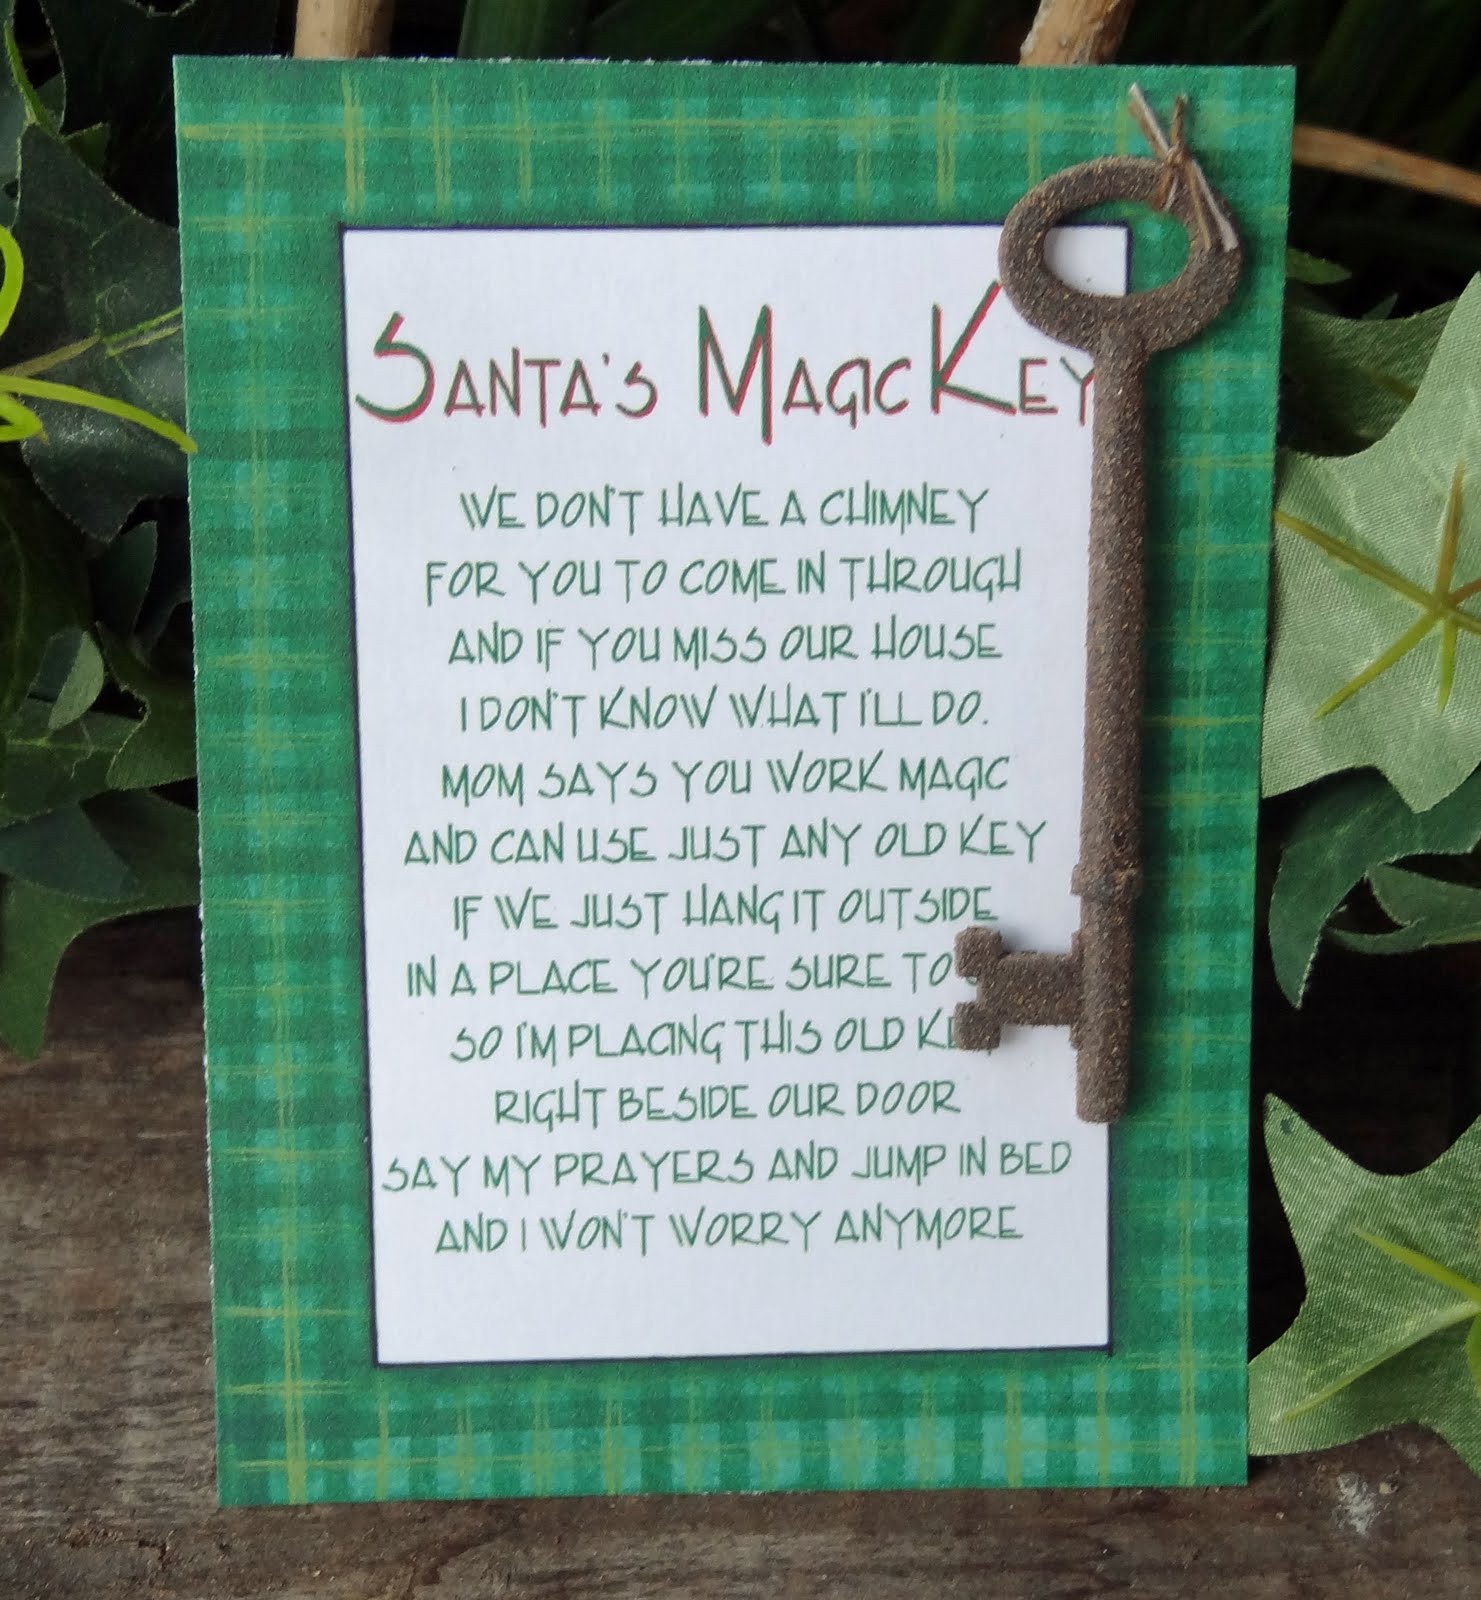 SANTA'S MAGIC KEY
WE DON'T HAVE A CHIMNEY
FOR YOU TO COME IN THROUGH
AND IF YOU MISS OUR HOUSE
I DON'T KNOW WHAT I'LL DO.
MOM SAYS YOU WORK MAGIC
AND CAN USE JUST ANY OLD KEY
IF WE JUST HANG IT OUTSIDE
IN A PLACE YOU'RE SURE TO
SO I'M PLACING THIS OLD KEY
RIGHT BESIDE OUR DOOR
SAY MY PRAYERS AND JUMP IN BED
AND I WON'T WORRY ANYMORE